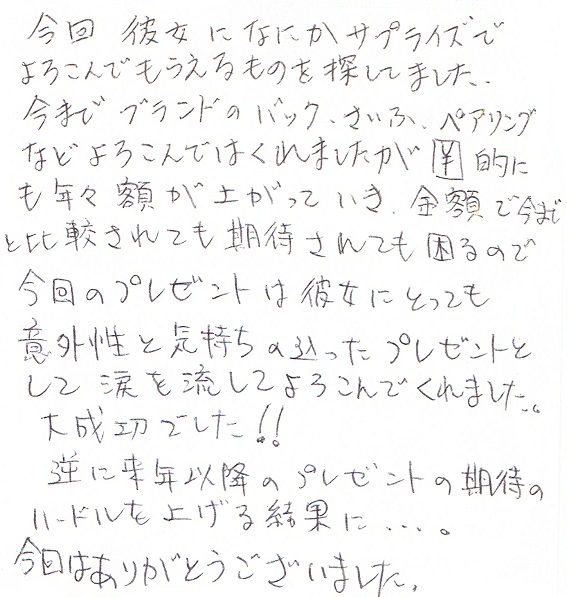 今回 彼女になにかサプライズで
よろこんでもらえるものを探してました。
今まで ブランドのバック、さいふ、ペアリング
などよろこんではくれましたが ¥ 的に
も年々 額が上がっていき、金額で今まで
と比較されても期待されても困るので
今回のプレゼントは彼女にとっても
意外性と気持ちの込ったプレゼントと
して 涙を流してよろこんでくれました。
大成功でした!!
逆に来年以降のプレゼントの期待の
ハードルを上げる結果に・・・。
今回はありがとうございました。